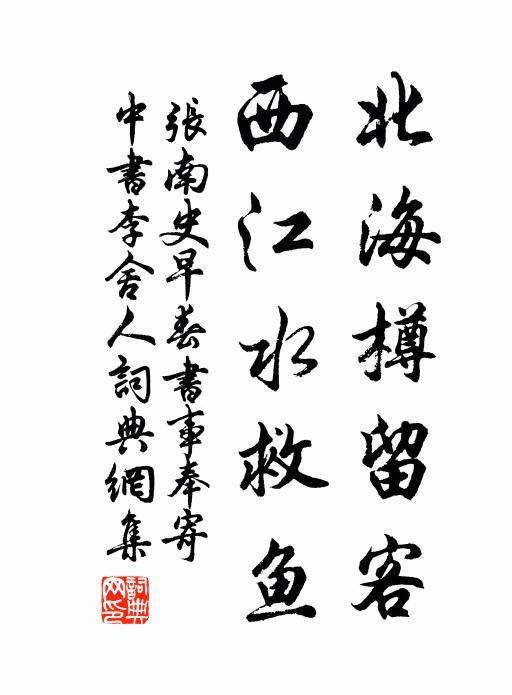 北海樽留客
西江水救鱼
張南史早春書事奉寄
中書李舍人詞典網集
詞典
网印